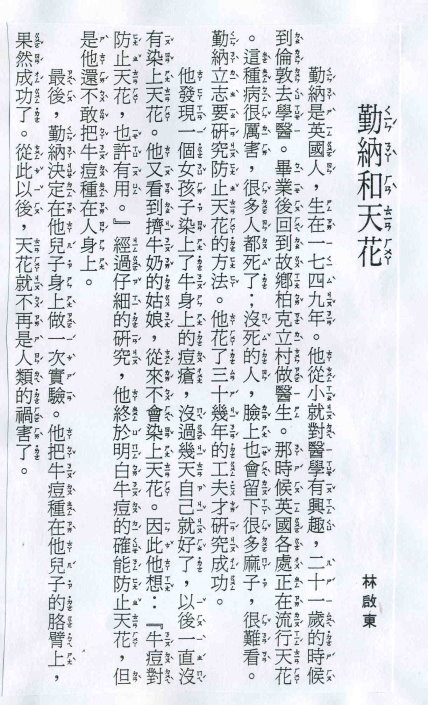 勤納和天花
林啟東
勤納是英國人，生在一七四九年。他從小就對醫學有興趣，二十一歲的時候
到倫敦去學醫。畢業後回到故鄉柏克立村做醫生。那時候英國各處正在流行天花
。這種病很厲害，很多人都死了；沒死的人，臉上也會留下很多麻子，很難看。
勤納立志要研究防止天花的方法。他花了三十幾年的工夫才研究成功。
他發現一個女孩子染上了牛身上的痘瘡，沒過幾天自己就好了，以後一直沒
有染上天花。他又看到擠牛奶的姑娘，從來不會染上天花。因此他想：『牛痘對
防止天花，也許有用。』經過仔細的研究，他終於明白牛痘的確能防止天花，但
是他還不敢把牛痘種在人身上。
最後，勤納決定在他兒子身上做一次實驗。他把牛痘種在他兒子的胳臂上，
果然成功了。從此以後，天花就不再是人類的禍害了。